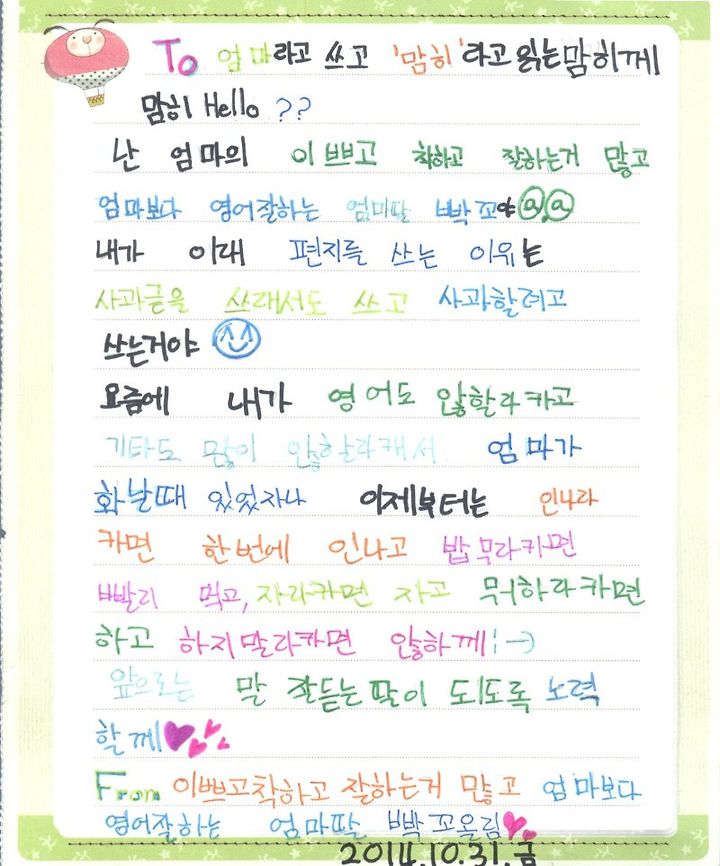 To 엄마라고 쓰고 '맘히'라고 읽는맘히께
맘히 Hello ??
난 엄마의 이쁘고 착하고 잘하는거 많고
엄마보다 영어잘하는 엄마딸 빡꼬야@@
내가 이래 편지를 쓰는 이유는
사과글을 쓰래서도 쓰고 사과할려고
쓰는거야
요즘에 내가 영어도 않할라카고
기타도 많이 않할라캐서 엄마가
화날때 있었자나 이제부터는 인나라
카면 한번에 인나고 밥무라카면
빨리 먹고, 자라카면 자고 뭐하라카면
하고 하지말라카면 않하께 :-)
앞으로는 말 잘듣는딸이 되도록 노력
할께
From 이쁘고착하고 잘하는거 많고 엄마보다
영어잘하는 엄마딸 빡꼬올림
2014.10.31.금